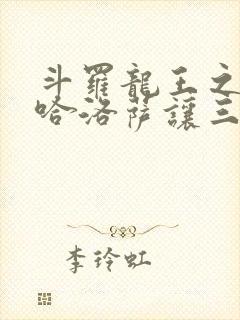 斗羅龍王之
哈洛薩讓三
李玲虹